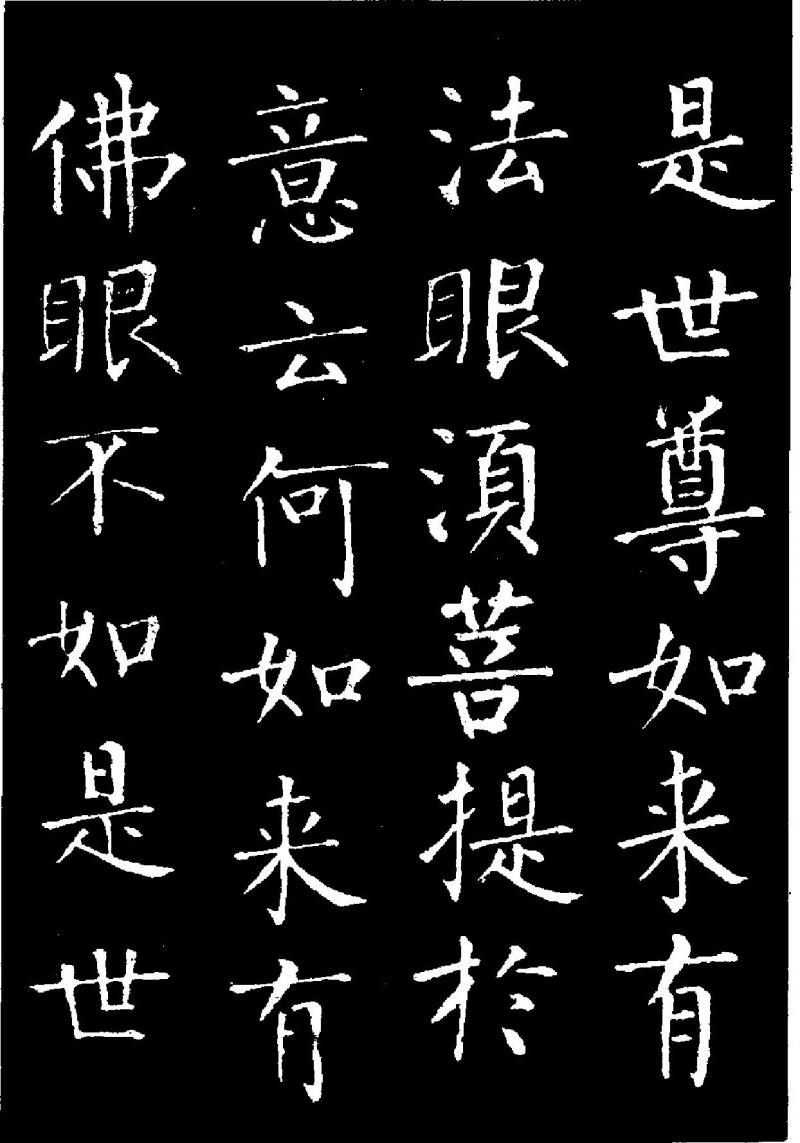 是世尊如来有
法眼湏菩提扵
意云何如来有
佛眼不如是世